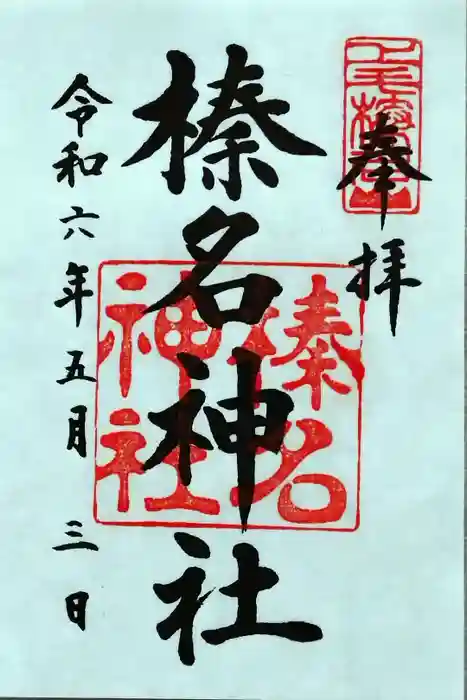 奉拝
榛名神社
榛名
神社
令和六年五月三日